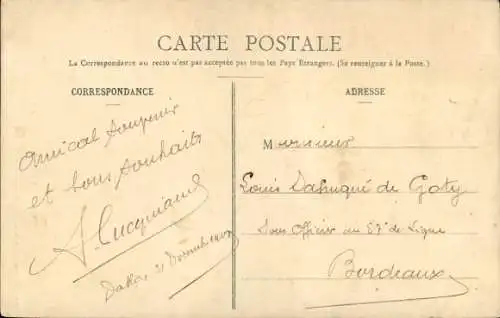 CARTE POSTALE
La Correspondance au recto n'est pas acceptée par tous les Pays Etrangers. (Se renseigner à la Poste.)
CORRESPONDANCE
ADRESSE
amical souvenir
et bons souhaits
Dakar 21
Monsieur
Louis de Goty
Sous Officier au 57e de Ligne
Bordeaux